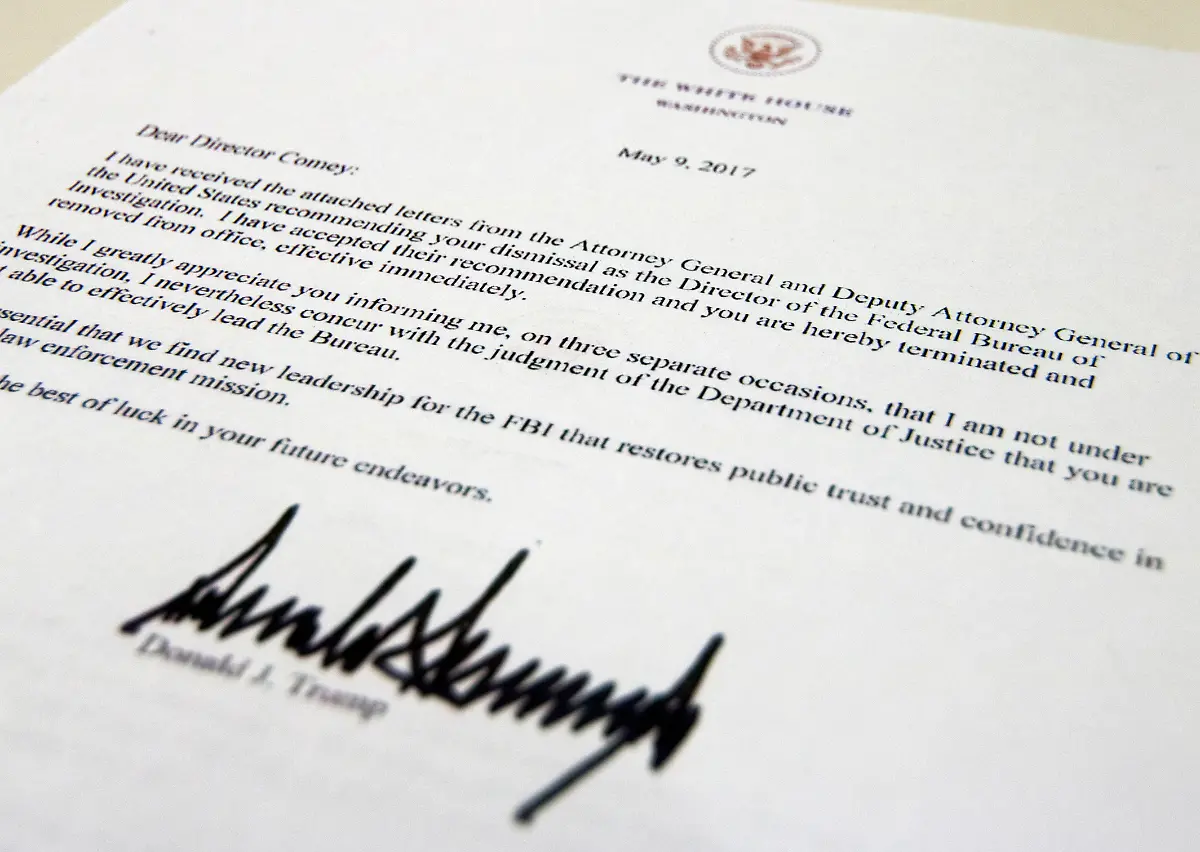 THE WHITE HOUSE
WASHINGTON
May 9, 2017
Dear Director Comey:
I have received the attached letters from the Attorney General and Deputy Attorney General of
the United States recommending your dismissal as the Director of the Federal Bureau of
Investigation. I have accepted their recommendation and you are hereby terminated and
removed from office, effective immediately.
While I greatly appreciate you informing me, on three separate occasions, that I am not under
investigation, I nevertheless concur with the judgment of the Department of Justice that you are
able to effectively lead the Bureau.
that we find new leadership for the FBI that restores public trust and confidence in
law enforcement mission.
the best of luck in your future endeavors.
Donald J. Trump